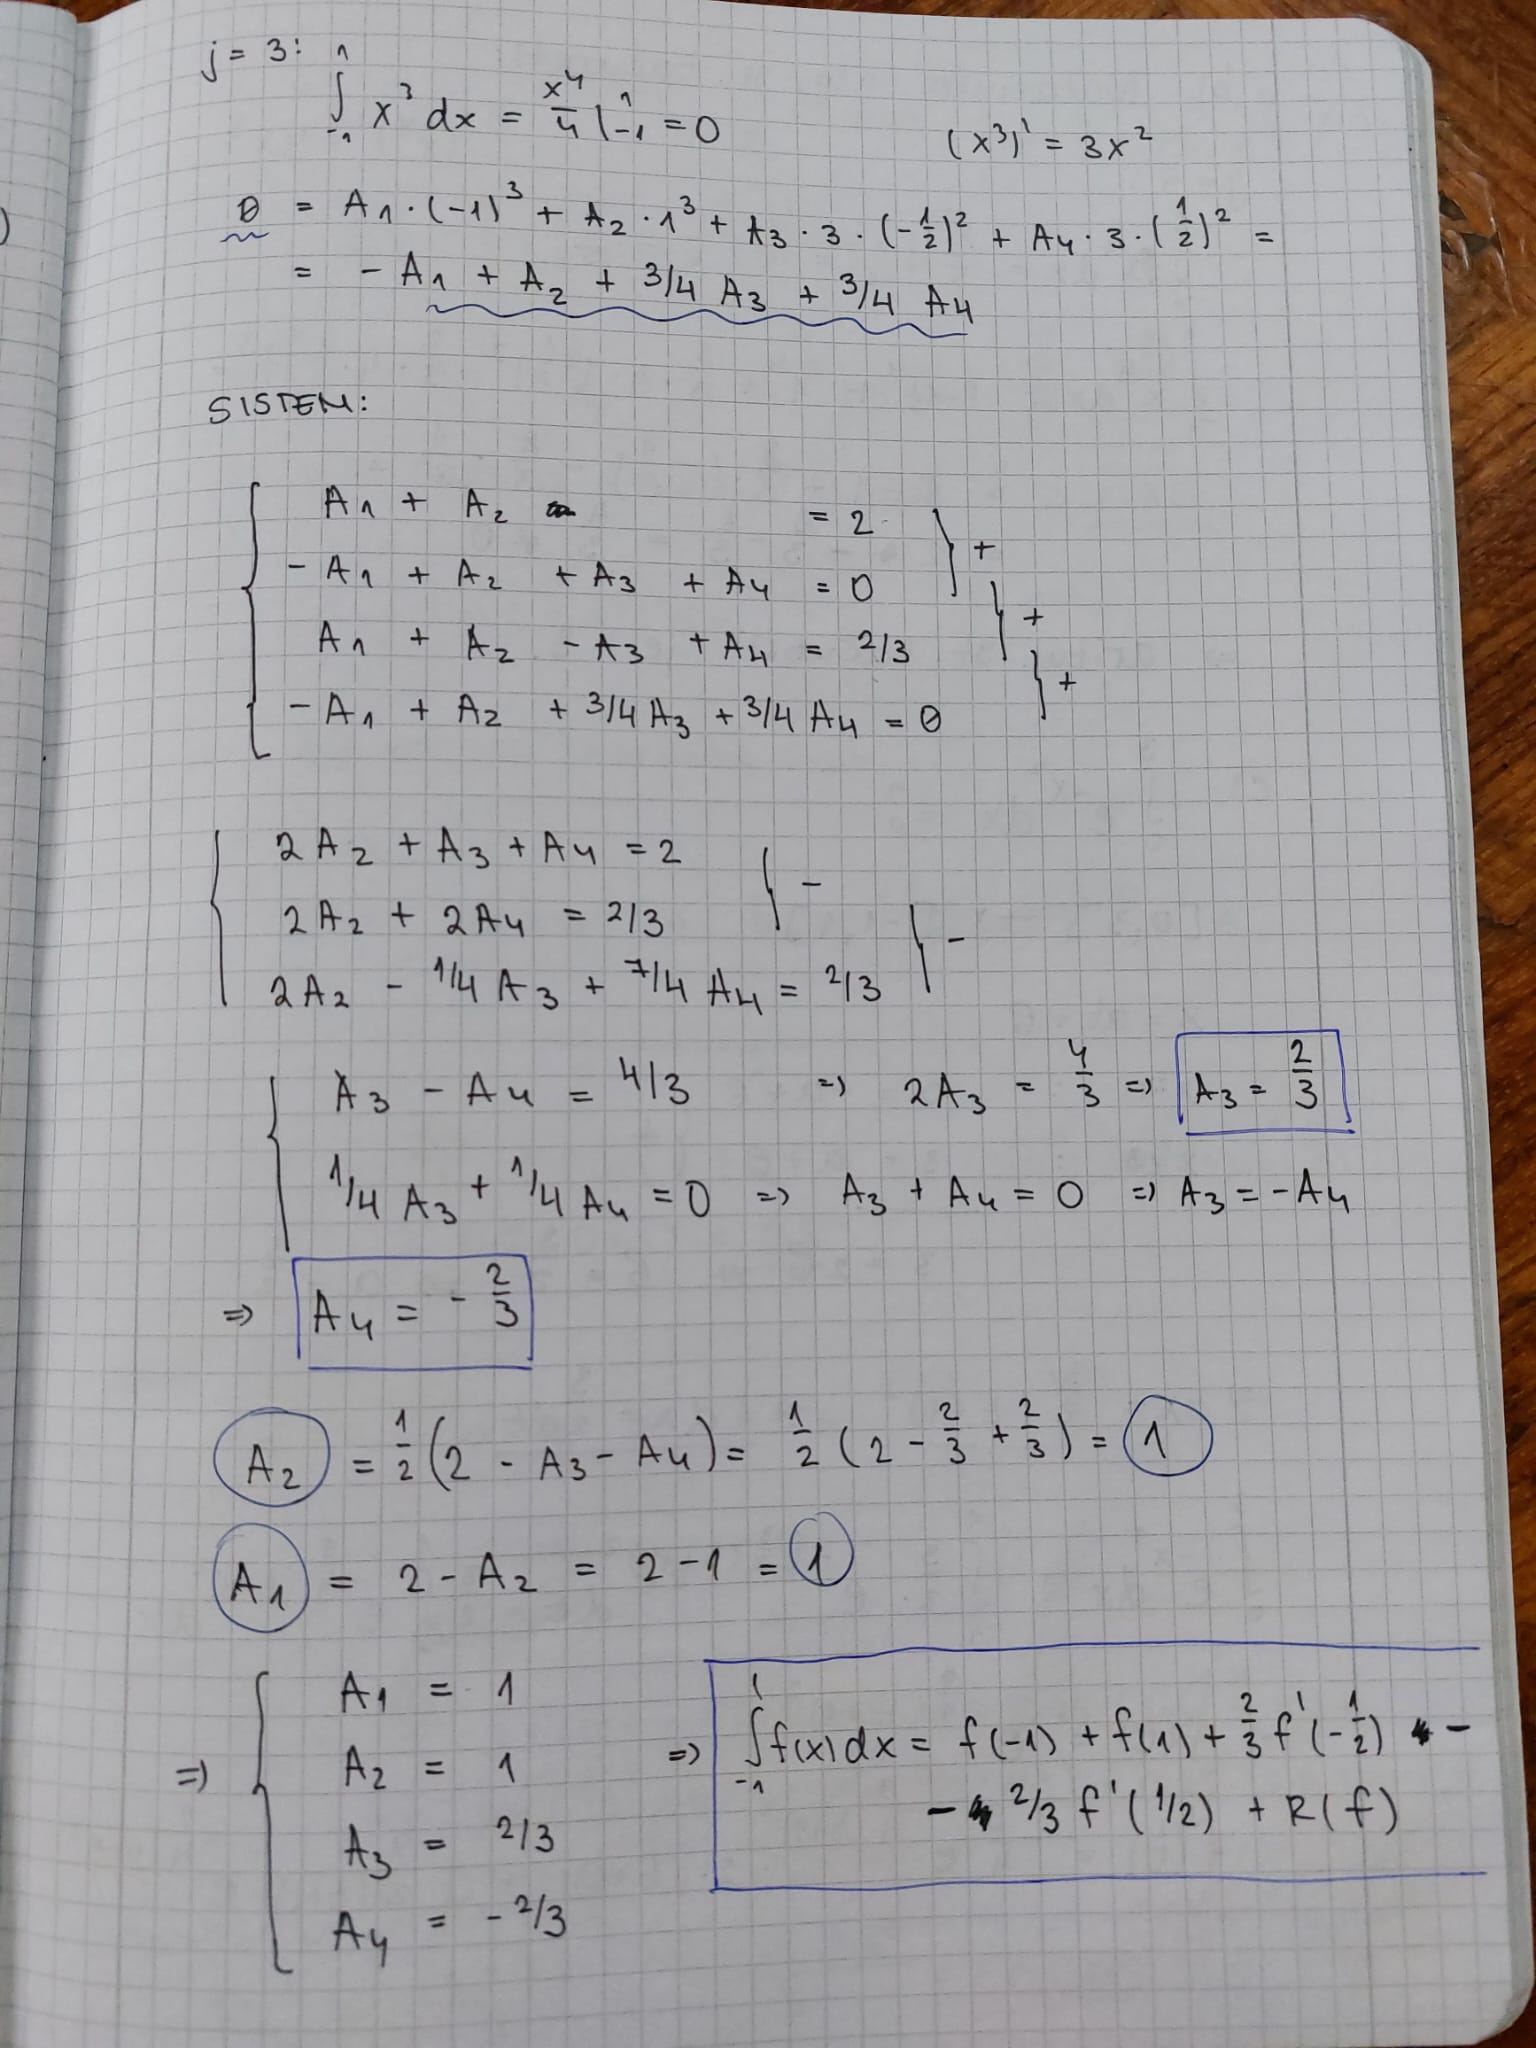 j = 3:
∫₋₁¹ x³ dx = x⁴/4 |₋₁¹ = 0
(x³)' = 3x²
0 = A₁·(-1)³ + A₂·1³ + A₃·3·(-1/2)² + A₄·3·(1/2)² =
= - A₁ + A₂ + 3/4 A₃ + 3/4 A₄
SISTEM:
A₁ + A₂ = 2
- A₁ + A₂ + A₃ + A₄ = 0
A₁ + A₂ - A₃ + A₄ = 2/3
- A₁ + A₂ + 3/4 A₃ + 3/4 A₄ = 0
+
+
+
2A₂ + A₃ + A₄ = 2
2A₂ + 2A₄ = 2/3
2A₂ - 1/4 A₃ + 7/4 A₄ = 2/3
-
-
A₃ - A₄ = 4/3 => 2A₃ = 4/3 => A₃ = 2/3
1/4 A₃ + 1/4 A₄ = 0 => A₃ + A₄ = 0 => A₃ = - A₄
=> A₄ = - 2/3
A₂ = 1/2 (2 - A₃ - A₄) = 1/2 (2 - 2/3 + 2/3) = 1
A₁ = 2 - A₂ = 2 - 1 = 1
=> A₁ = 1
A₂ = 1
A₃ = 2/3
A₄ = - 2/3
=> ∫₋₁¹ f(x) dx = f(-1) + f(1) + 2/3 f'(-1/2) -
- 2/3 f'(1/2) + R(f)